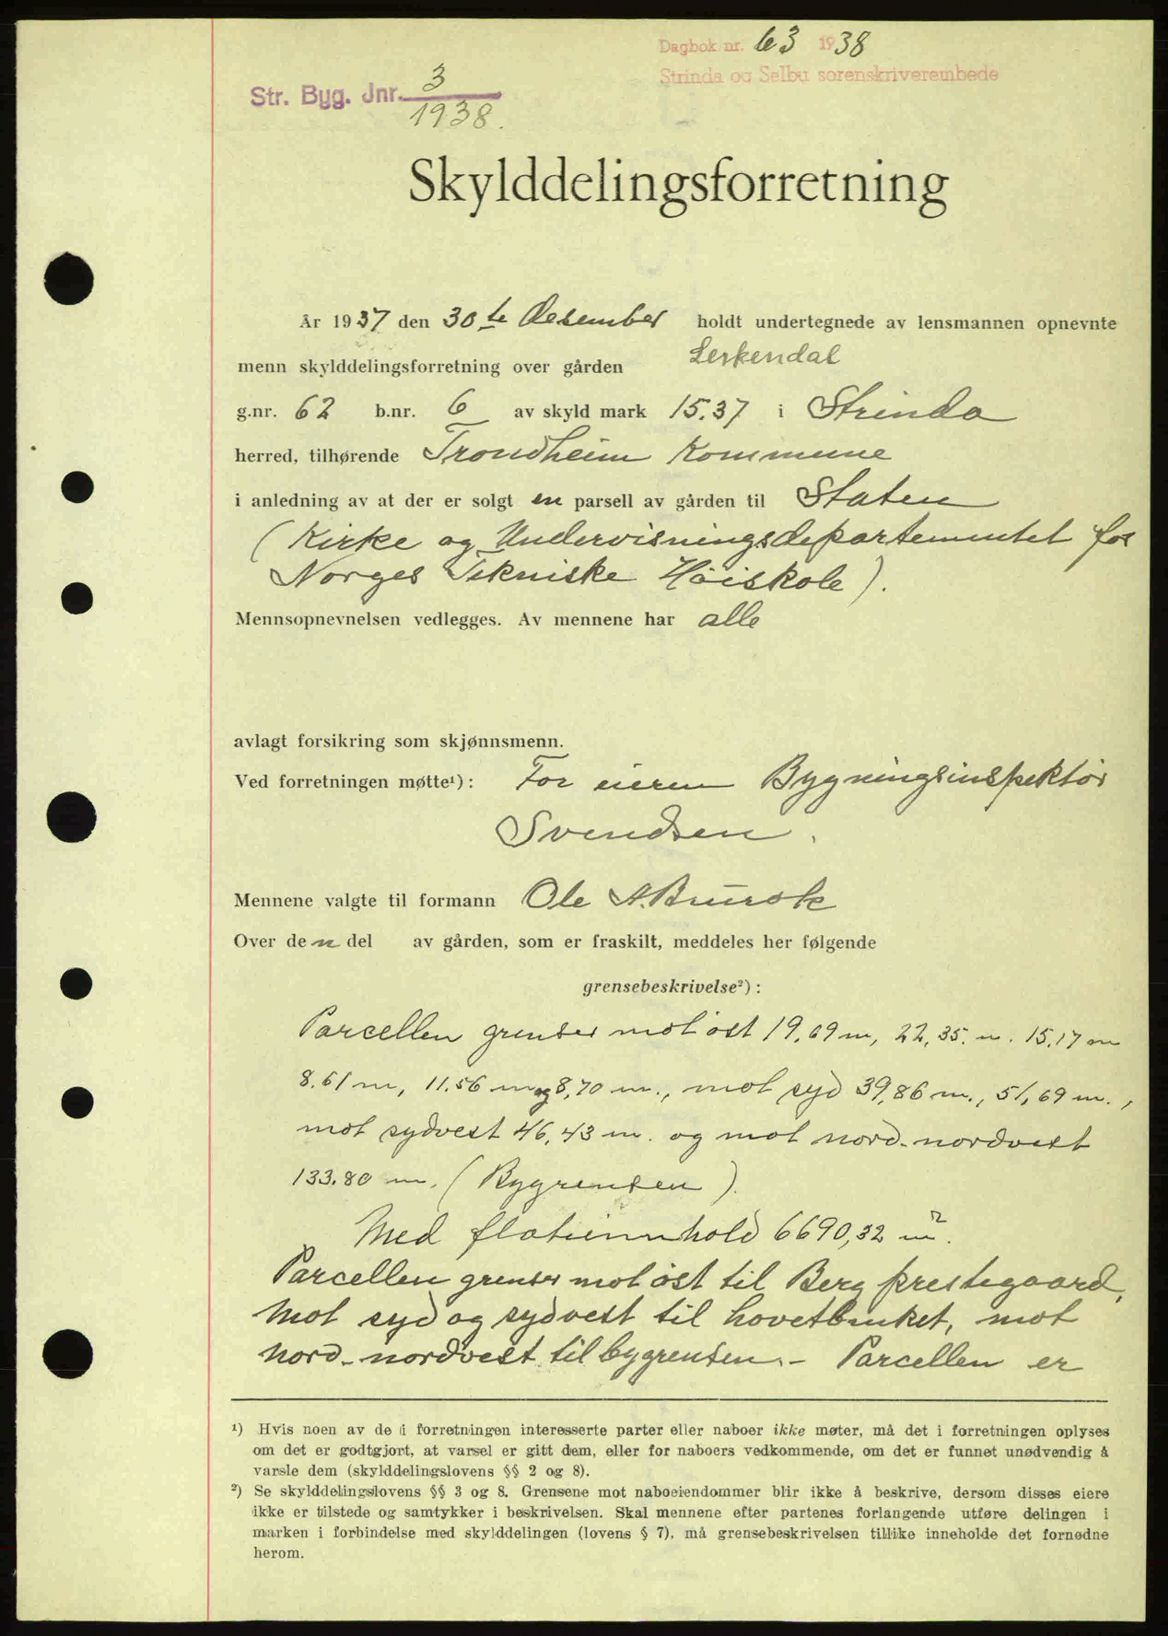 Dagbok nr. 63 1938
Strinda og Selbu sorenskriverembede
Str. Byg. Jnr. 3
1938.
Skylddelingsforretning
År 1937 den 30te Desember holdt undertegnede av lensmannen opnevnte
menn skylddelingsforretning over gården Lerkendal
g.nr. 62 b.nr. 6 av skyld mark 15.37 i Strinda
herred, tilhørende Trondheim Kommune
i anledning av at der er solgt en parsell av gården til Staten
(Kirke og Undervisningsdepartementet for
Norges Tekniske Höiskole).
Mennsopnevnelsen vedlegges. Av mennene har alle
avlagt forsikring som skjønnsmenn.
Ved forretningen møtte¹): For eieren Bygningsinspektör
Svendsen.
Mennene valgte til formann Ole A. Brurok
Over den del av gården, som er fraskilt, meddeles her følgende
grensebeskrivelse²):
Parcellen grenser mot öst 19,69 m, 22,35. m. 15,17 m
8.61 m, 11.56 m og 8,70 m., mot syd 39,86 m., 51,69 m.,
mot sydvest 46,43 m. og mot nord-nordvest
133.80 m. (Bygrensen).
Med flateinnhold 6690,32 m².
Parcellen grenser mot öst til Berg prestegaard,
mot syd og sydvest til hovetbruket, mot
nord-nordvest til bygrensen. - Parcellen er
¹) Hvis noen av de i forretningen interesserte parter eller naboer ikke møter, må det i forretningen oplyses
om det er godtgjort, at varsel er gitt dem, eller for naboers vedkommende, om det er funnet unødvendig å
varsle dem (skylddelingslovens §§ 2 og 8).
²) Se skylddelingslovens §§ 3 og 8. Grensene mot naboeiendommer blir ikke å beskrive, dersom disses eiere
ikke er tilstede og samtykker i beskrivelsen. Skal mennene efter partenes forlangende utføre delingen i
marken i forbindelse med skylddelingen (lovens § 7), må grensebeskrivelsen tillike inneholde det fornødne
herom.